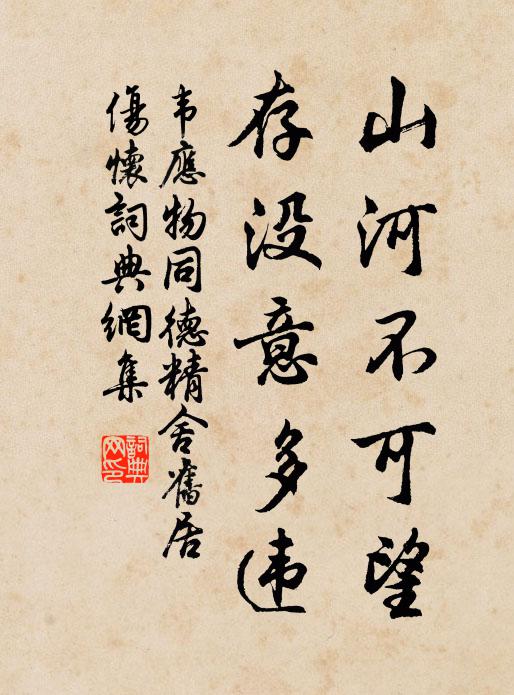 山河不可望
存没意多违
韦應物同德精舍舊居
傷懷詞典網集
詞典网印